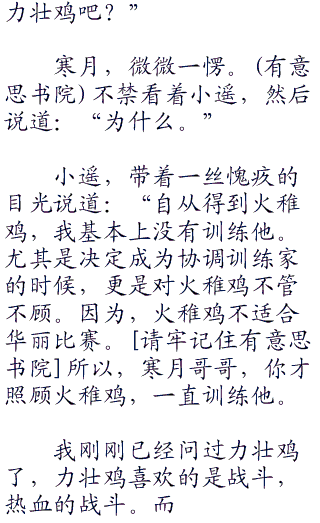 力壮鸡吧？”
寒月，微微一愣。(有意
思书院)不禁看着小遥，然后
说道：“为什么。”
小遥，带着一丝愧疚的
目光说道：“自从得到火稚
鸡，我基本上没有训练他。
尤其是决定成为协调训练家
的时候，更是对火稚鸡不管
不顾。因为，火稚鸡不适合
华丽比赛。[请牢记住有意思
书院]所以，寒月哥哥，你才
照顾火稚鸡，一直训练他。
我刚刚已经问过力壮鸡
了，力壮鸡喜欢的是战斗，
热血的战斗。而